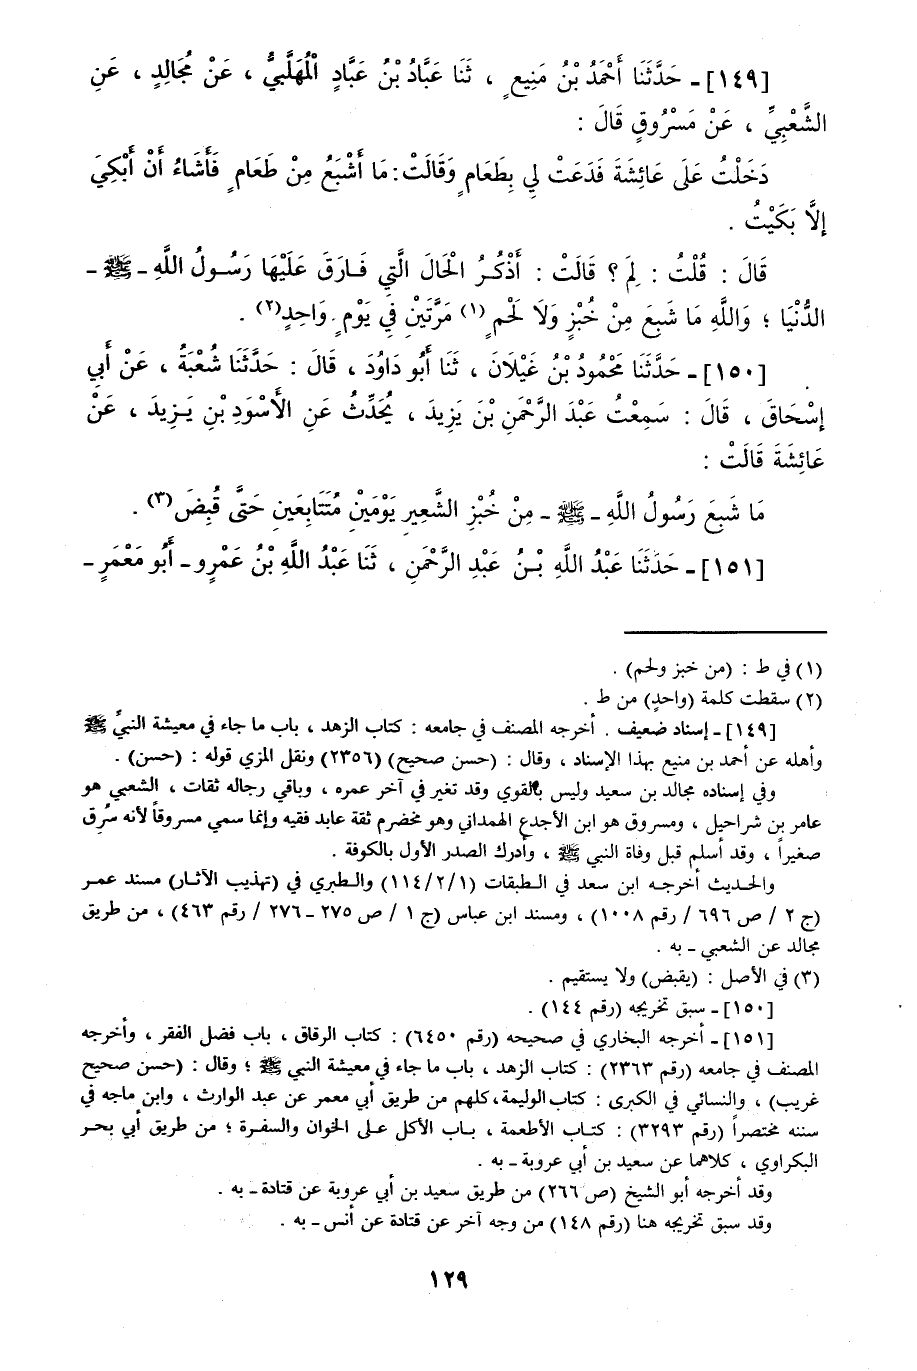 [١٤٩] ـ حَدَّثَنَا أَحْمَدُ بْنُ مَنِيعٍ ، ثَنَا عَبَّادُ بْنُ عَبَّادٍ الْمُهَلَّبِيُّ ، عَنْ مُجَالِدٍ ، عَنِ
الشَّعْبِيِّ ، عَنْ مَسْرُوقٍ قَالَ :
دَخَلْتُ عَلَى عَائِشَةَ فَدَعَتْ لِي بِطَعَامٍ وَقَالَتْ: مَا أَشْبَعُ مِنْ طَعَامٍ فَأَشَاءُ أَنْ أَبْكِيَ
إِلَّا بَكَيْتُ .
قَالَ : قُلْتُ : لِمَ ؟ قَالَتْ : أَذْكُرُ الْحَالَ الَّتِي فَارَقَ عَلَيْهَا رَسُولُ اللَّهِ ـ ﷺ ـ
الدُّنْيَا ؛ وَاللَّهِ مَا شَبِعَ مِنْ خُبْزٍ وَلَا لَحْمٍ (١) مَرَّتَيْنِ فِي يَوْمٍ وَاحِدٍ(٢) .
[١٥٠] ـ حَدَّثَنَا مَحْمُودُ بْنُ غَيْلَانَ ، ثَنَا أَبُو دَاوُدَ ، قَالَ : حَدَّثَنَا شُعْبَةُ ، عَنْ أَبِي
إِسْحَاقَ ، قَالَ : سَمِعْتُ عَبْدَ الرَّحْمَنِ بْنَ يَزِيدَ ، يُحَدِّثُ عَنِ الْأَسْوَدِ بْنِ يَزِيدَ ، عَنْ
عَائِشَةَ قَالَتْ :
مَا شَبِعَ رَسُولُ اللَّهِ ـ ﷺ ـ مِنْ خُبْزِ الشَّعِيرِ يَوْمَيْنِ مُتَتَابِعَينِ حَتَّى قُبِضَ(٣) .
[١٥١] ـ حَدَثَنَا عَبْدُ اللَّهِ بْنُ عَبْدِ الرَّحْمَنِ ، ثَنَا عَبْدُ اللَّهِ بْنُ عَمْرٍو ـ أَبُو مَعْمَرٍ ـ
(١) في ط : (من خبز ولحم) .
(٢) سقطت كلمة (واحدٍ) من ط .
[١٤٩] ـ إسناد ضعيف . أخرجه المصنف في جامعه : كتاب الزهد ، باب ما جاء في معيشة النبيِّ ﷺ
وأهله عن أحمد بن منيع بهذا الإسناد ، وقال : (حسن صحيح) (٢٣٥٦) ونقل المزي قوله : (حسن) .
وفي إسناده مجالد بن سعيد وليس بالقوي وقد تغير في آخر عمره ، وباقي رجاله ثقات ، الشعبي هو
عامر بن شراحيل ، ومسروق هو ابن الأجدع الهمداني وهو مخضرم ثقة عابد فقيه وإنما سمي مسروقاً لأنه سُرق
صغيراً ، وقد أسلم قبل وفاة النبي ﷺ ، وأدرك الصدر الأول بالكوفة .
والحديث أخرجه ابن سعد في الطبقات (١١٤/٢/١) والطبري في (تهذيب الآثار) مسند عمر
(ج ٢ / ص ٦٩٦ / رقم ١٠٠٨) ، ومسند ابن عباس (ج ١ / ص ٢٧٥ ـ ٢٧٦ / رقم ٤٦٣) ، من طريق
مجالد عن الشعبي ـ به .
(٣) في الأصل : (يقبض) ولا يستقيم .
[١٥٠] ـ سبق تخريجه (رقم ١٤٤) .
[١٥١] ـ أخرجه البخاري في صحيحه (رقم ٦٤٥٠) : كتاب الرقاق ، باب فضل الفقر ، وأخرجه
المصنف في جامعه (رقم ٢٣٦٣) : كتاب الزهد ، باب ما جاء في معيشة النبي ﷺ ؛ وقال : (حسن صحيح
غريب) ، والنسائي في الكبرى : كتاب الوليمة، كلهم من طريق أبي معمر عن عبد الوارث ، وابن ماجه في
سننه مختصراً (رقم ٣٢٩٣) : كتاب الأطعمة ، باب الأكل على الخوان والسفرة ؛ من طريق أبي بحر
البكراوي ، كلاهما عن سعيد بن أبي عروبة ـ به .
وقد أخرجه أبو الشيخ (ص ٢٦٦) من طريق سعيد بن أبي عروبة عن قتادة ـ به .
وقد سبق تخريجه هنا (رقم ١٤٨) من وجه آخر عن قتادة عن أنس ـ به .
١٢٩